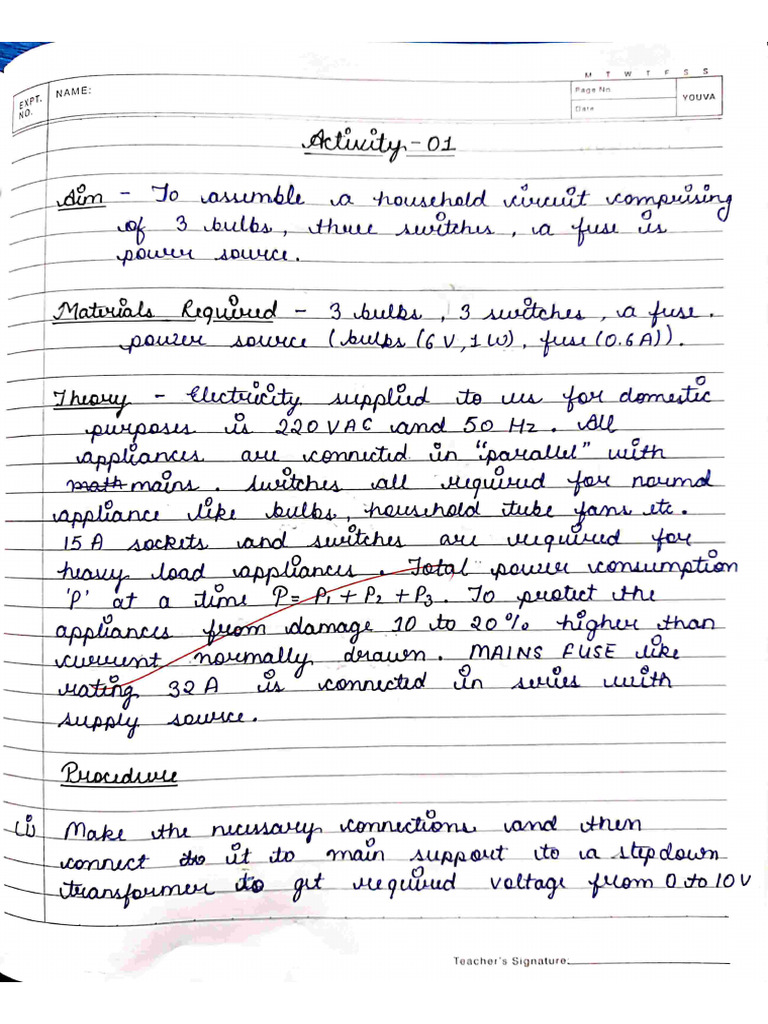 M T W T F S S
EXPT. NO.
NAME:
Page No
Date
YOUVA
Activity - 01
Aim - To assemble a household circuit comprising
of 3 bulbs, three switches, a fuse is
power source.
Materials Required - 3 bulbs, 3 switches, a fuse.
power source (bulbs (6V, 1W), fuse (0.6A)).
Theory - Electricity supplied to us for domestic
purposes is 220 VAC and 50 Hz. All
appliances are connected in "parallel" with
math mains. Switches all required for normal
appliance like bulbs, household tube fans etc.
15 A sockets and switches are required for
heavy load appliances. Total power consumption
'P' at a time P = P1 + P2 + P3. To protect the
appliances from damage 10 to 20% higher than
current normally drawn. MAINS FUSE like
rating 32 A is connected in series with
supply source.
Procedure
(i) Make the necessary connections and then
connect to it to main support to a stepdown
transformer to get required voltage from 0 to 10V
Teacher's Signature: